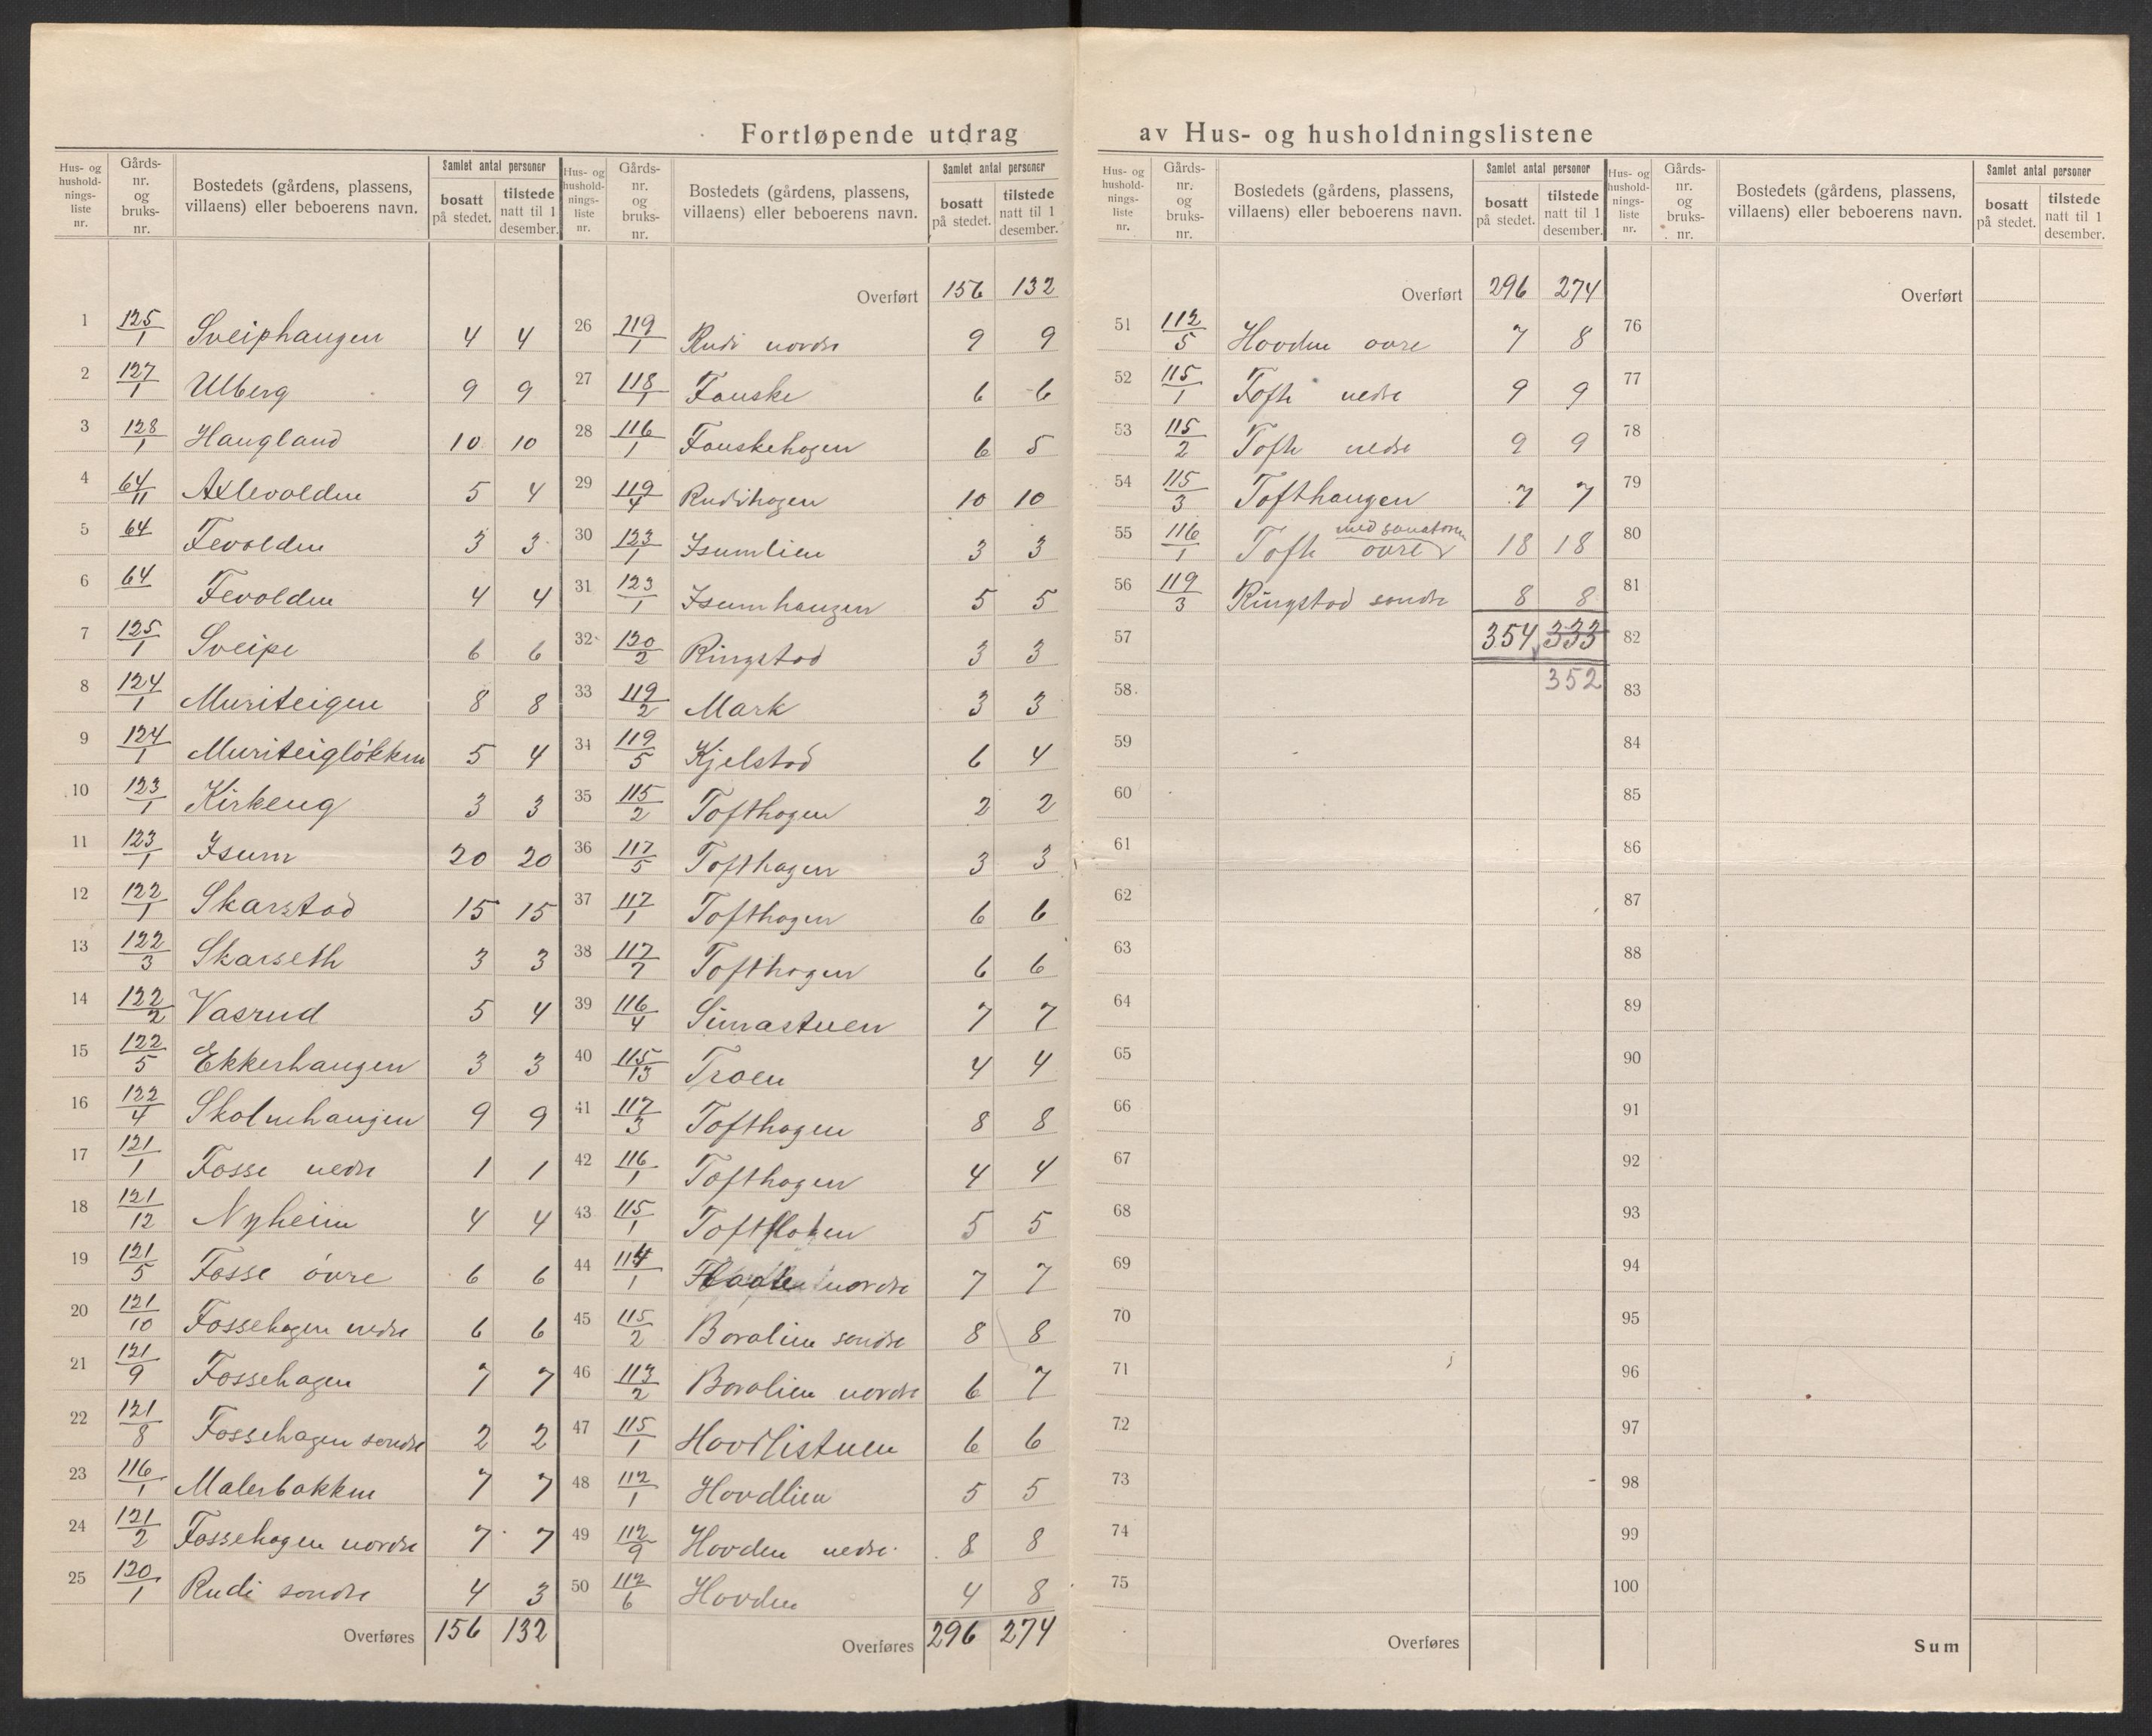 Fortløpende utdrag av Hus- og husholdningslistene
Hus- og husholdningsliste nr. | Gårds-nr. og bruks-nr. | Bostedets (gårdens, plassens, villaens) eller beboerens navn. | Samlet antal personer | bosatt på stedet. | tilstede natt til 1 desember.
1 125/1 Sveiphaugen 4 4
2 127/1 Ulberg 9 9
3 128/1 Haugland 10 10
4 64/11 Axlevolden 5 4
5 64 Fevolden 3 3
6 64 Fevolden 4 4
7 125/1 Sveipe 6 6
8 124/1 Muriteigen 8 8
9 124/1 Muriteigløkken 5 4
10 123/1 Kirkeng 3 3
11 123/1 Isum 20 20
12 122/1 Skarstad 15 15
13 122/3 Skarseth 3 3
14 122/2 Vasrud 5 4
15 122/5 Ekkerhaugen 3 3
16 122/4 Skolmehaugen 9 9
17 121/1 Fosse nedre 1 1
18 121/12 Nyheim 4 4
19 121/5 Fosse øvre 6 6
20 121/10 Fossehagen nedre 6 6
21 121/9 Fossehagen 7 7
22 121/8 Fossehagen søndre 2 2
23 116/1 Malerbakken 7 7
24 121/2 Fossehagen nordre 7 7
25 120/1 Rudi søndre 4 3
Overføres 156 132
Hus- og husholdningsliste nr. | Gårds-nr. og bruks-nr. | Bostedets (gårdens, plassens, villaens) eller beboerens navn. | Samlet antal personer | bosatt på stedet. | tilstede natt til 1 desember.
Overført 156 132
26 119/1 Rudi nordre 9 9
27 118/1 Fauske 6 6
28 116/1 Fauskehagen 6 5
29 119/4 Rudihagen 10 10
30 123/1 Isumlien 3 3
31 123/1 Isumhaugen 5 5
32 120/2 Ringstad 3 3
33 119/2 Mark 3 3
34 119/5 Kjelstad 6 4
35 115/2 Tofthagen 2 2
36 117/5 Tofthagen 3 3
37 117/1 Tofthagen 6 6
38 117/7 Tofthagen 6 6
39 116/4 Simastuen 7 7
40 115/13 Troen 4 4
41 117/3 Tofthagen 8 8
42 116/1 Tofthagen 4 4
43 115/1 Toftflaten 5 5
44 114/1 nordre 7 7
45 115/2 Boralien søndre 8 8
46 113/2 Boralien nordre 6 7
47 115/1 Hovdlistuen 6 6
48 112/1 Hovdlien 5 5
49 112/9 Hovden nedre 8 8
50 112/6 Hovden 4 8
Overføres 296 274
Hus- og husholdningsliste nr. | Gårds-nr. og bruks-nr. | Bostedets (gårdens, plassens, villaens) eller beboerens navn. | Samlet antal personer | bosatt på stedet. | tilstede natt til 1 desember.
Overført 296 274
51 112/5 Hovden øvre 7 8
52 115/1 Tofte nedre 9 9
53 115/2 Tofte nedre 9 9
54 115/3 Tofthaugen 7 7
55 116/1 Tofte øvre med sanatorium 18 18
56 119/3 Ringstad søndre 8 8
57 354 333
58 352
59
60
61
62
63
64
65
66
67
68
69
70
71
72
73
74
75
Overføres
Hus- og husholdningsliste nr. | Gårds-nr. og bruks-nr. | Bostedets (gårdens, plassens, villaens) eller beboerens navn. | Samlet antal personer | bosatt på stedet. | tilstede natt til 1 desember.
Overført
76
77
78
79
80
81
82
83
84
85
86
87
88
89
90
91
92
93
94
95
96
97
98
99
100
Sum